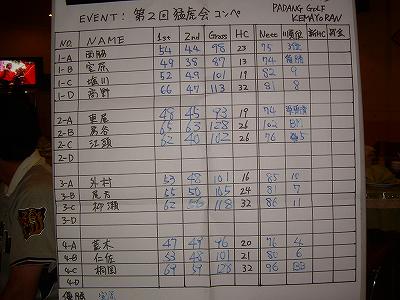 EVENT: 第2回猛虎会コンペ PADANG GOLF
KEMAYORAN
NO. NAME 1st 2nd Gross HC Nett 順位 新HC 賞金
1-A 西脇 54 44 98 23 75 3位
1-B 宝原 49 38 87 13 74 優勝
1-C 堀川 52 49 101 19 82 9
1-D 高野 66 47 113 32 81 8
2-A 48 45 93 19 74 準優勝
2-B 65 63 128 26 102 BM
2-C 江頭 62 40 102 26 76 5
2-D
3-A 外村 53 48 101 16 85 10
3-B 尾方 55 50 105 24 81 7
3-C 柳瀬 62 56 118 32 86 11
3-D
4-A 並木 47 49 96 20 76 4
4-B 仁佐 53 48 101 21 80 6
4-C 桐国 69 59 128 32 96 BB
4-D
優勝 宝原